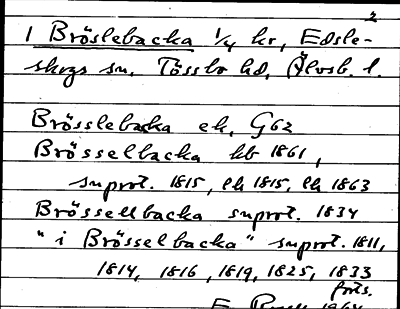 2
1 Bröslebacka 1/4 hr, Edsle-
skogs sn, Tössbo hd, Älvsb. l.
Brösslebacka ek, G62
Brösselbacka hb 1861,
snprot. 1815, lh 1815, lh 1863
Brössellbacka snprot. 1834
"i Brösselbacka" snprot. 1811,
1814, 1816, 1819, 1825, 1833
forts.